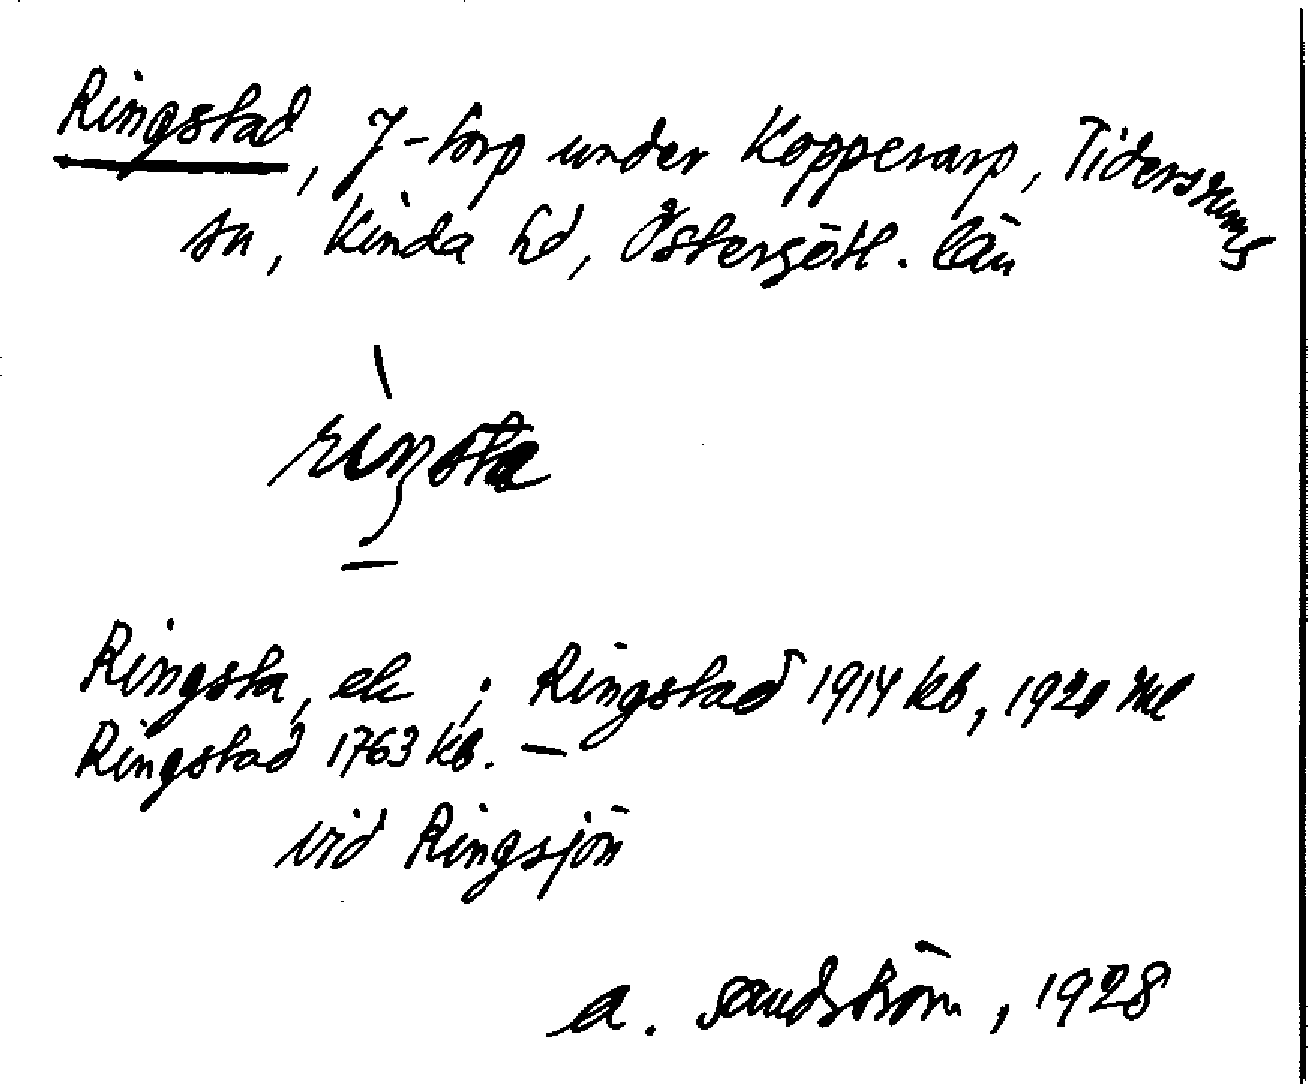 Ringstad, f-torp under Kopperarp, Tidersrums
sn, Kinda hd, Östergötl. län
riŋsta
Ringsta, ek ; Ringstad 1914 kb, 1920 ml
Ringstad 1763 kb. –
vid Ringsjön
A. Sandström, 1928